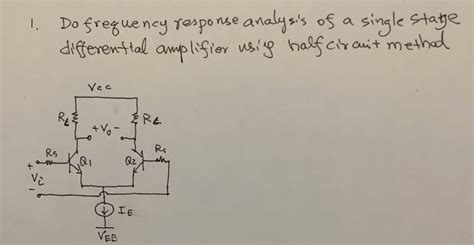 1. Do frequency response analysis of a single stage
differential amplifier using half circuit method
Vcc
RL RL
+ Vo -
Rs Rs
+ Q1 Q2
Vi
-
IE
VEE